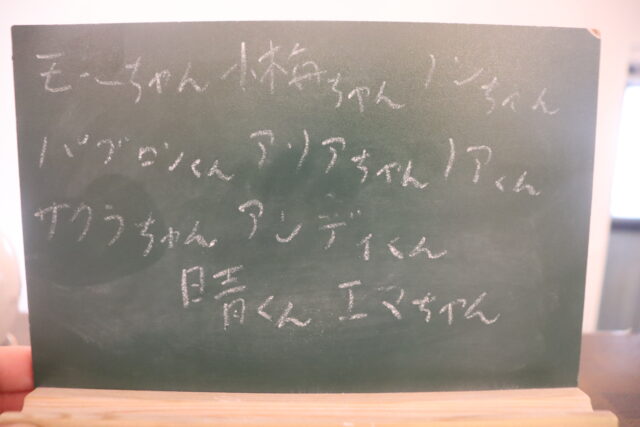 モーちゃん 小梅ちゃん ノンちゃん
バブロンくん アリアちゃん ノアくん
サクラちゃん アンディくん
晴くん エマちゃん